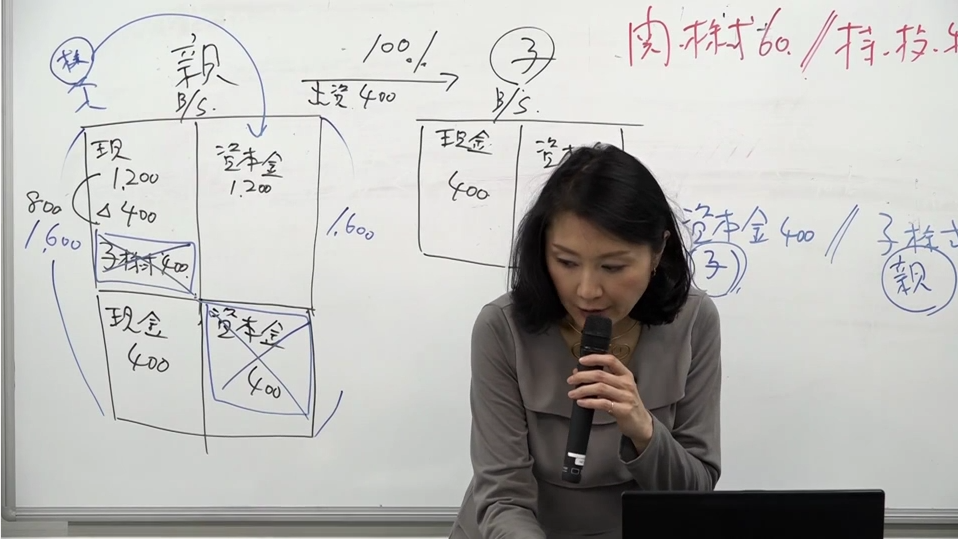 株
親
B/S.
100%
出資 400
子
B/S.
関.株式60 // 持.投.
現
1,200
△400
子株式400
資本金
1,200
800
1,600
1,600
現金
400
資本金
400
現金
400
資
資本金400 // 子株式
子
親